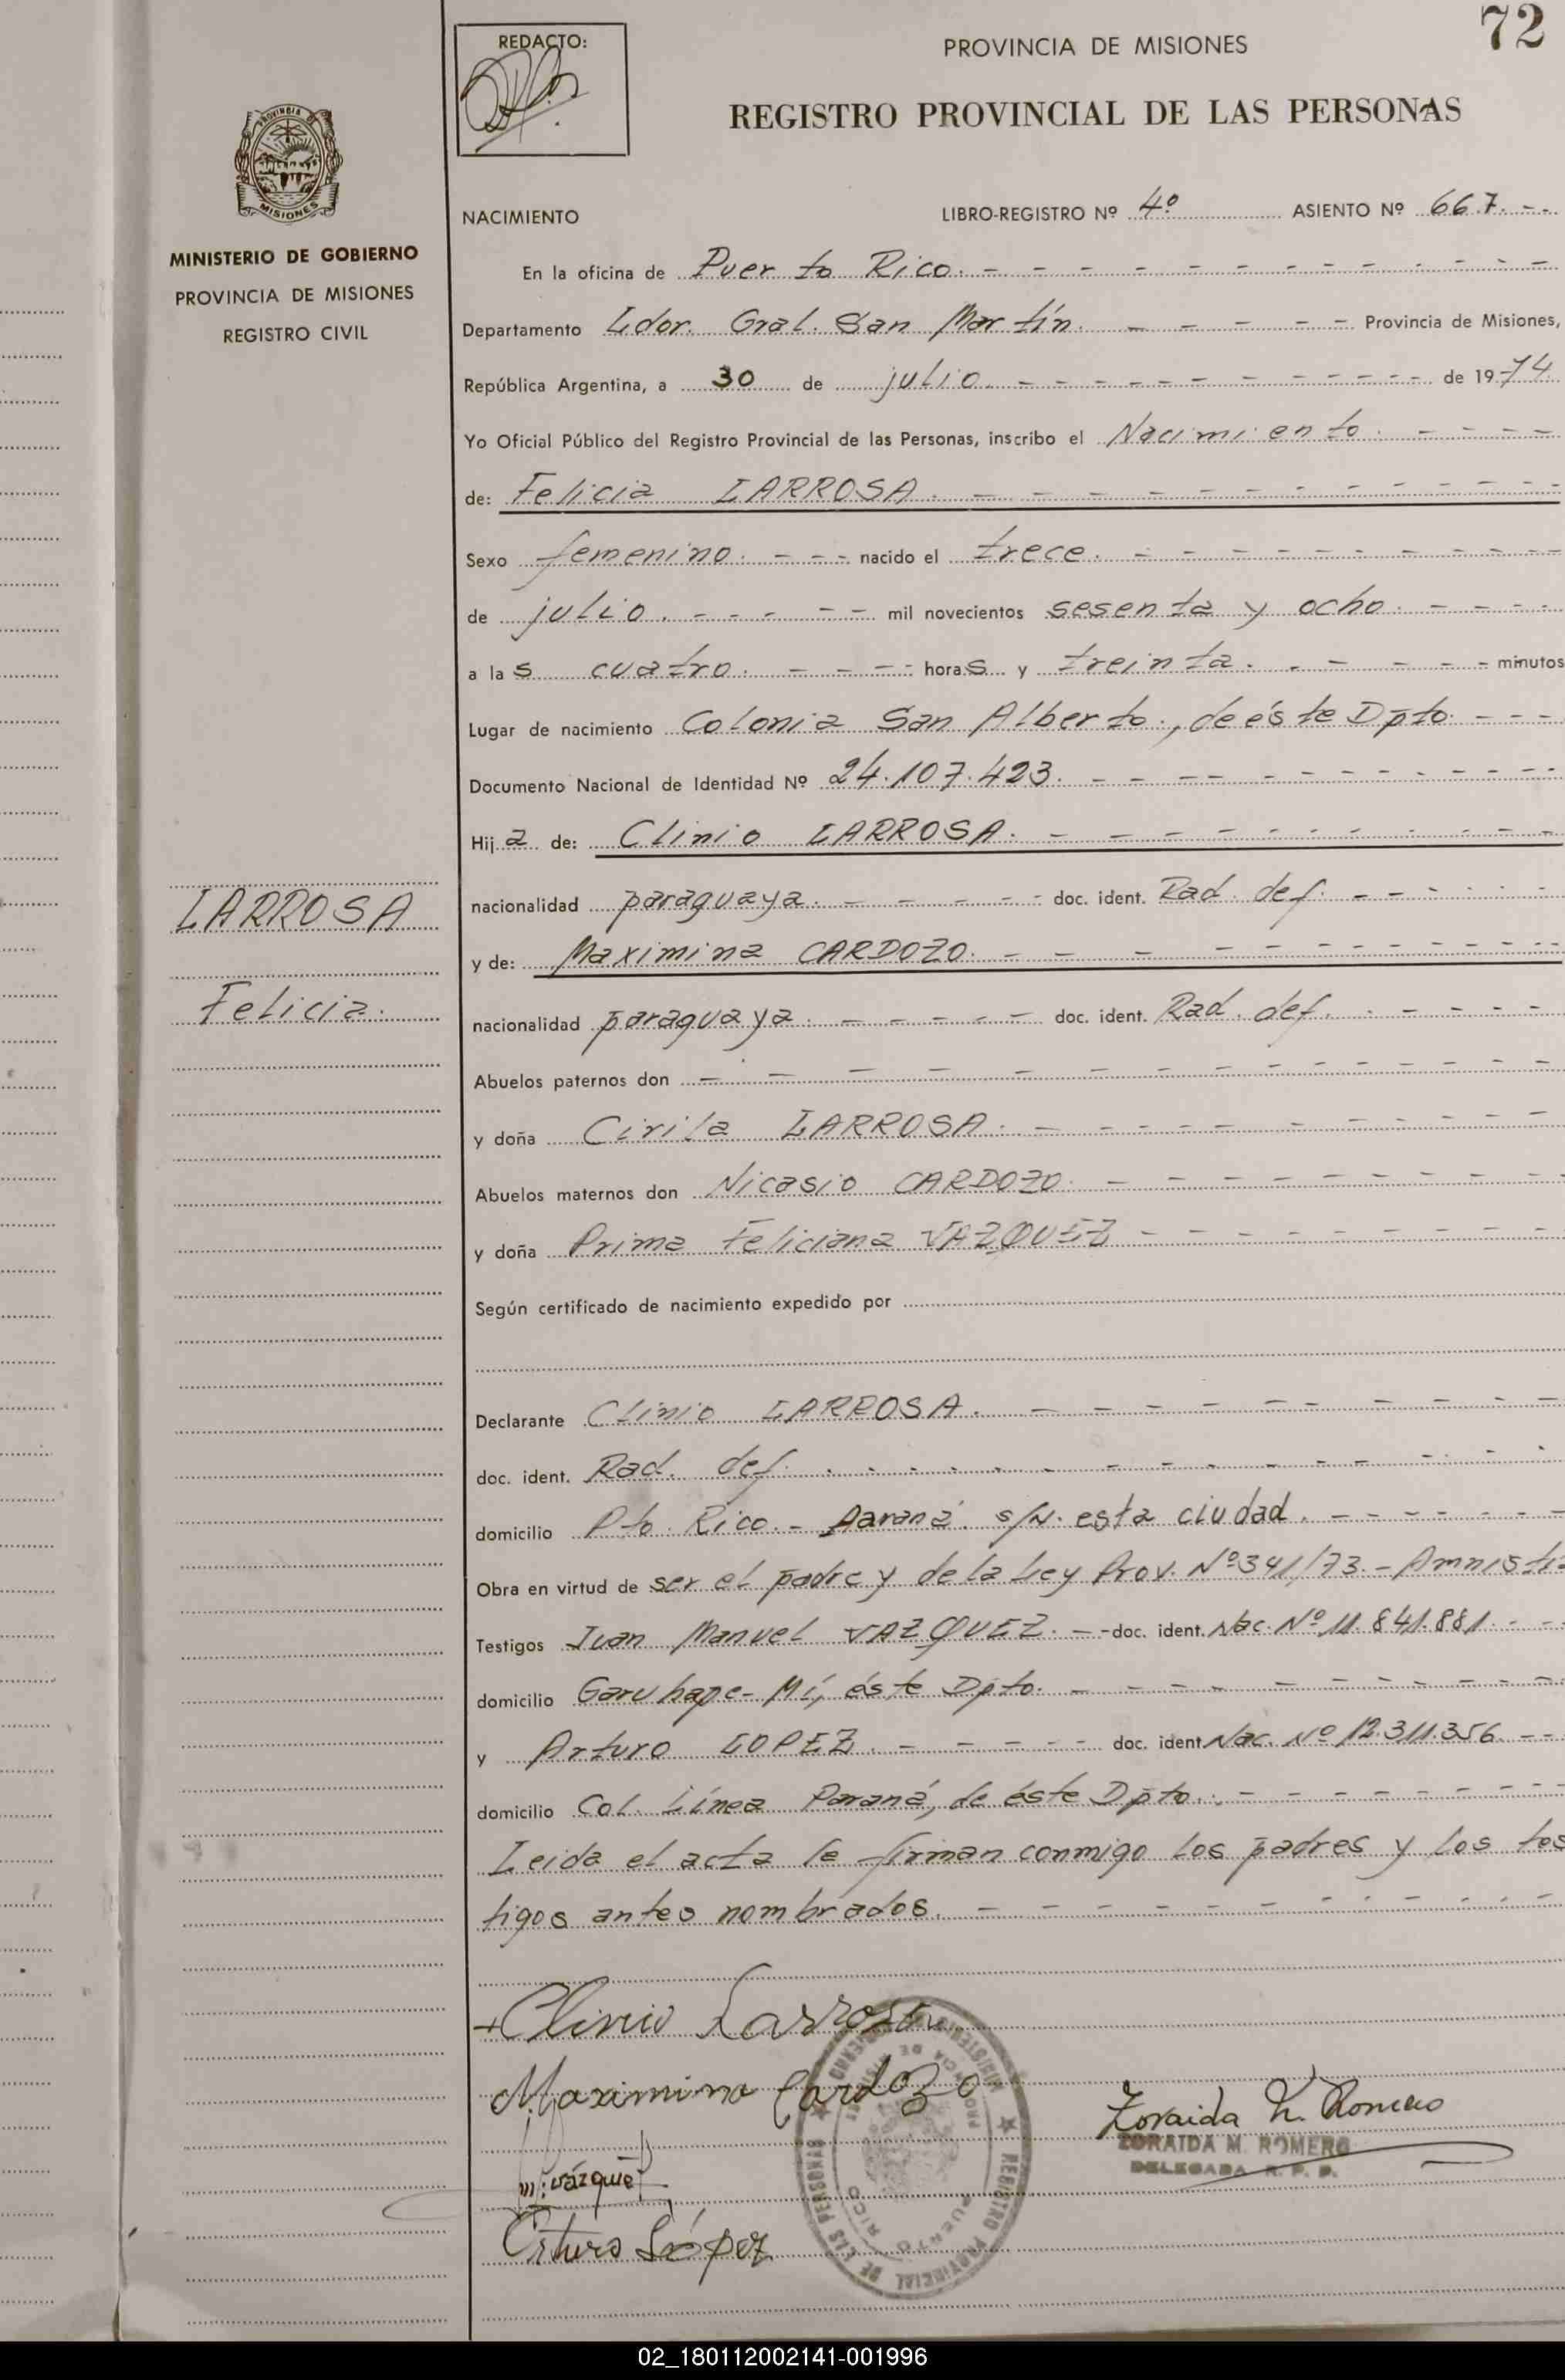 72
REDACTO:
PROVINCIA DE MISIONES
REGISTRO PROVINCIAL DE LAS PERSONAS
PROVINCIA DE
MISIONES
MINISTERIO DE GOBIERNO
PROVINCIA DE MISIONES
REGISTRO CIVIL
NACIMIENTO LIBRO-REGISTRO Nº 4º ASIENTO Nº 667.
En la oficina de Puerto Rico.
Departamento Ldor. Gral. San Martín. Provincia de Misiones,
República Argentina, a 30 de julio de 1974
Yo Oficial Público del Registro Provincial de las Personas, inscribo el Nacimiento.
de: Felicia LARROSA.
Sexo femenino. nacido el trece.
de julio. mil novecientos sesenta y ocho.
a las cuatro. horas y treinta. minutos
Lugar de nacimiento Colonia San Alberto, de éste Dpto
Documento Nacional de Identidad Nº 24.107.423.
Hija de: Clinio LARROSA.
nacionalidad paraguaya. doc. ident. Rad. def.
y de: Maximina CARDOZO.
nacionalidad paraguaya. doc. ident. Rad. def.
LARROSA
Felicia.
Abuelos paternos don
y doña Cirila LARROSA.
Abuelos maternos don Nicasio CARDOZO.
y doña Prima Feliciana VAZQUEZ
Según certificado de nacimiento expedido por
Declarante Clinio LARROSA.
doc. ident. Rad. def.
domicilio Pto. Rico. - Paraná. s/N. esta ciudad.
Obra en virtud de ser el padre y de la Ley Prov. Nº 341/73. - Amnistia
Testigos Juan Manuel VAZQUEZ. doc. ident. Nac. Nº 11.841.881.
domicilio Garuhape-Mí, éste Dpto.
y Arturo LOPEZ. doc. ident Nac. Nº 12.311.356
domicilio Col. Línea Paraná, de éste Dpto.
Leida el acta le firman conmigo los padres y los tes
tigos antes nombrados.
Clinio Larrosa
Maximina Cardozo
m. vázquez
Arturo López
Zoraida M. Romero
ZORAIDA M. ROMERO
DELEGADA R. P. P.
REGISTRO PROVINCIAL DE LAS PERSONAS
PUERTO RICO
02_180112002141-001996